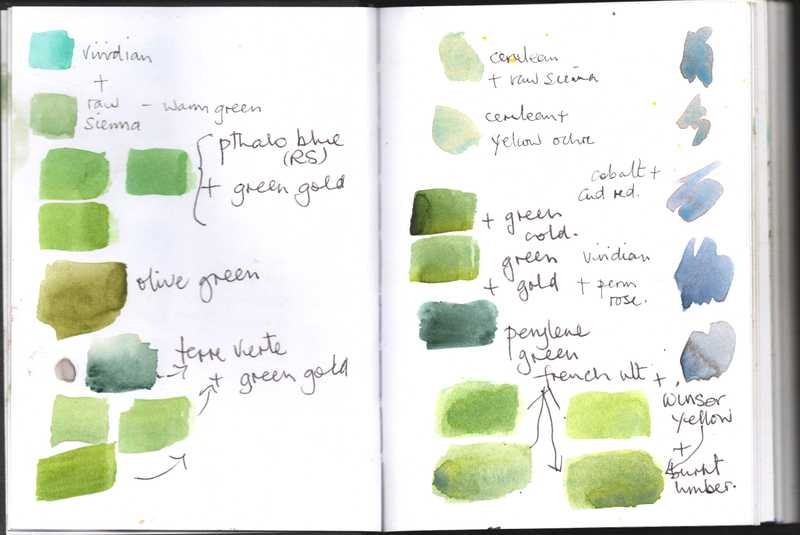 viridian
+
raw - warm green
sienna
pthalo blue
(RS)
+ green gold
olive green
terre verte
+ green gold
cerulean
+ raw sienna
cerulean +
yellow ochre
cobalt +
cad red.
+ green
gold.
green
+ gold
viridian
+ perm
rose.
perylene
green
french ult +
winsor
yellow
+
burnt
umber.